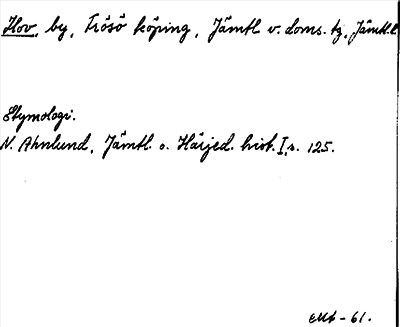 Hov, by, Frösö köping, Jämtl v. doms. tg, Jämtl.l
Etymologi.
N. Ahnlund, Jämtl. o. Härjed. hist. I, s. 125.
-61.